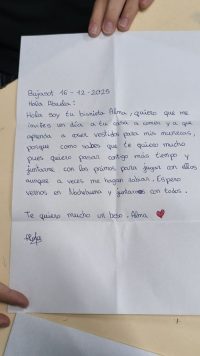 Bujanot 16-12-2025
Hola Abuelia:
Hola soy tu bisnieta Alma, quiero que me
invites un día a tu casa a comer y a que
aprenda a coser vestidos para mis muñecas,
porque como sabes que te quiero mucho
pues quiero pasar contigo más tiempo y
juntarme con los primos para jugar con ellos
aunque a veces me hagan rabiar. Espero
vernos en Nochebuena y juntarnos con todos.
Te quiero mucho un beso. Alma